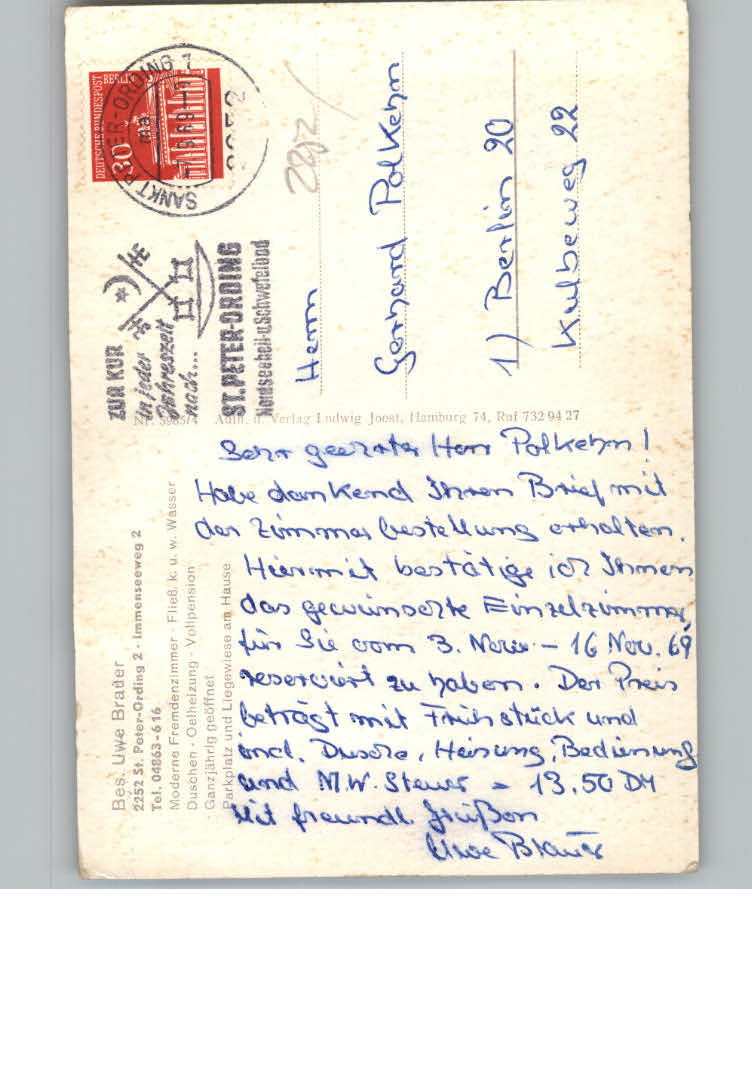 Bes. Uwe Brader
2252 St. Peter-Ording 2 · Immenseeweg 2
Tel. 04863-616
Moderne Fremdenzimmer · Fließ. k. u. w. Wasser
Duschen · Oelheizung · Vollpension
Ganzjährig geöffnet
Parkplatz und Liegewiese am Hause
Sehr geehrter Herr Polkehn!
Habe dankend Ihren Brief mit
der Zimmerbestellung erhalten.
Hiermit bestätige ich Ihnen
das gewünschte Einzelzimmer,
für Sie vom 3. Nov. - 16 Nov. 69
reserviert zu haben. Der Preis
beträgt mit Frühstück und
incl. Dusche, Heizung, Bedienung
und M.W. Steuer = 13.50 DM
Mit freundl. Grüßen
Uwe Brader
Nr. 5985/4 Aufn. u. Verlag Ludwig Joest, Hamburg 74, Ruf 732 94 27
ZUR KUR
in jeder
Jahreszeit
nach...
ST. PETER-ORDING
Nordseeheil-u. Schwefelbad
DEUTSCHE BUNDESPOST BERLIN
30
SANKT PETER-ORDING 1
2252
Herrn
Gerhard Polkehn
1) Berlin 20
Kulbeweg 22